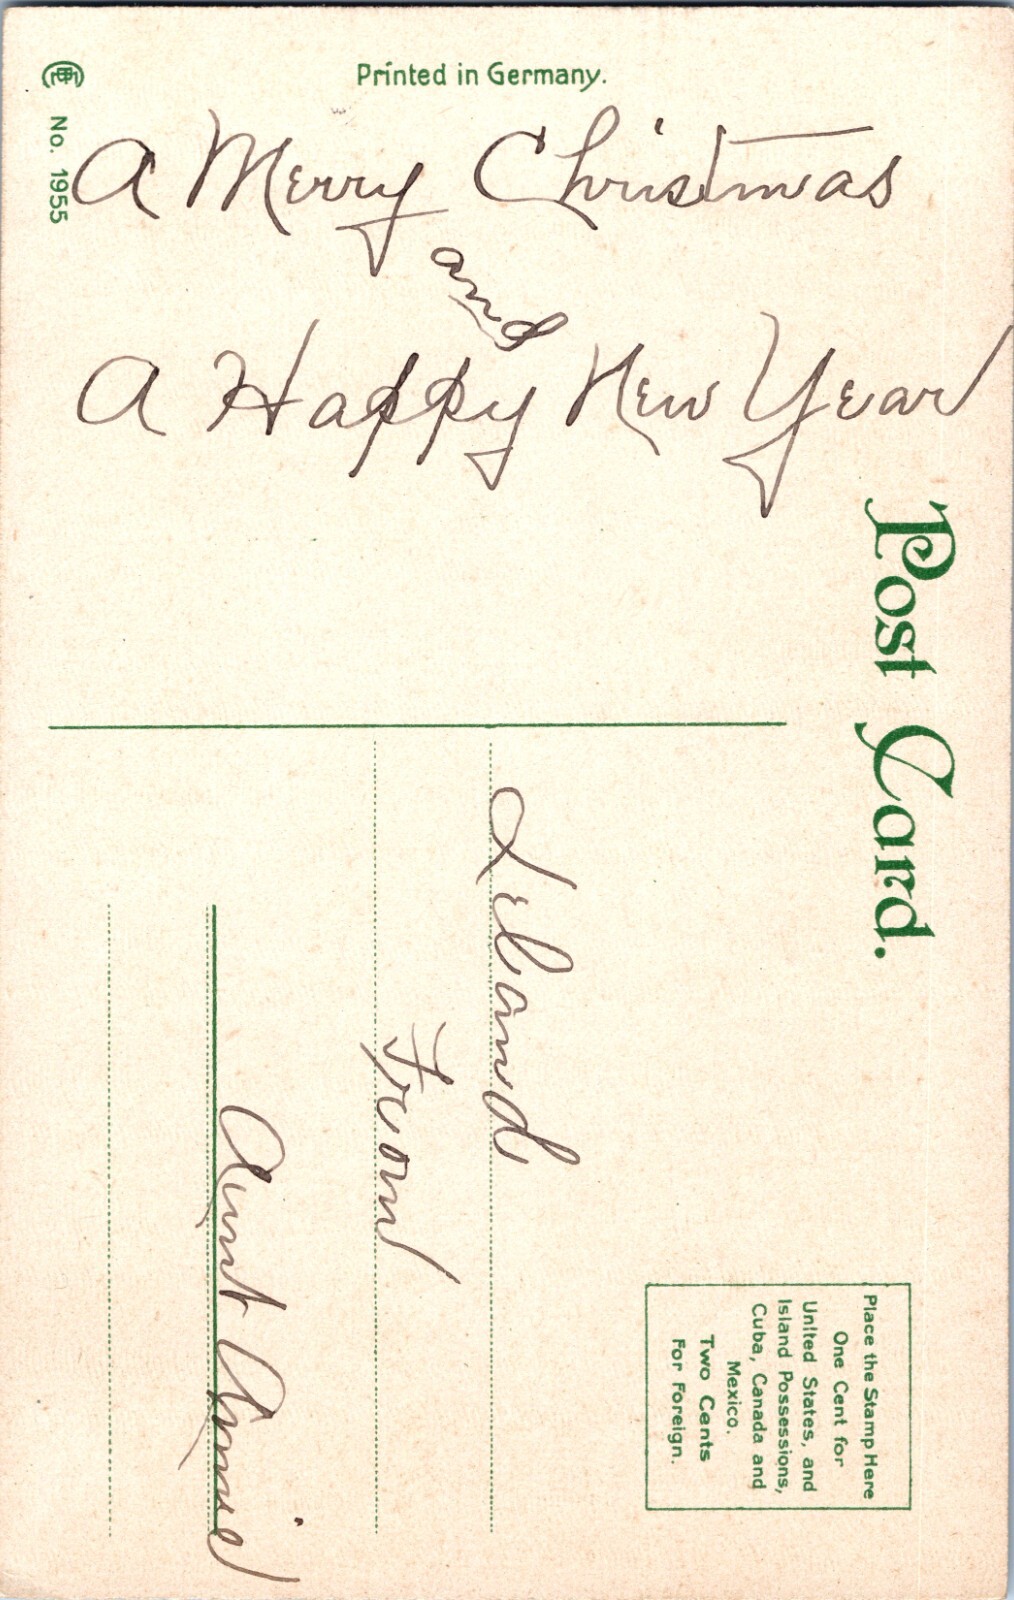 Printed in Germany.
No. 1955
A Merry Christmas
and
A Happy New Year
Post Card.
Place the Stamp Here
One Cent for
United States, and
Island Possessions,
Cuba, Canada and
Mexico.
Two Cents
For Foreign.
Leland
From
Aunt Annie